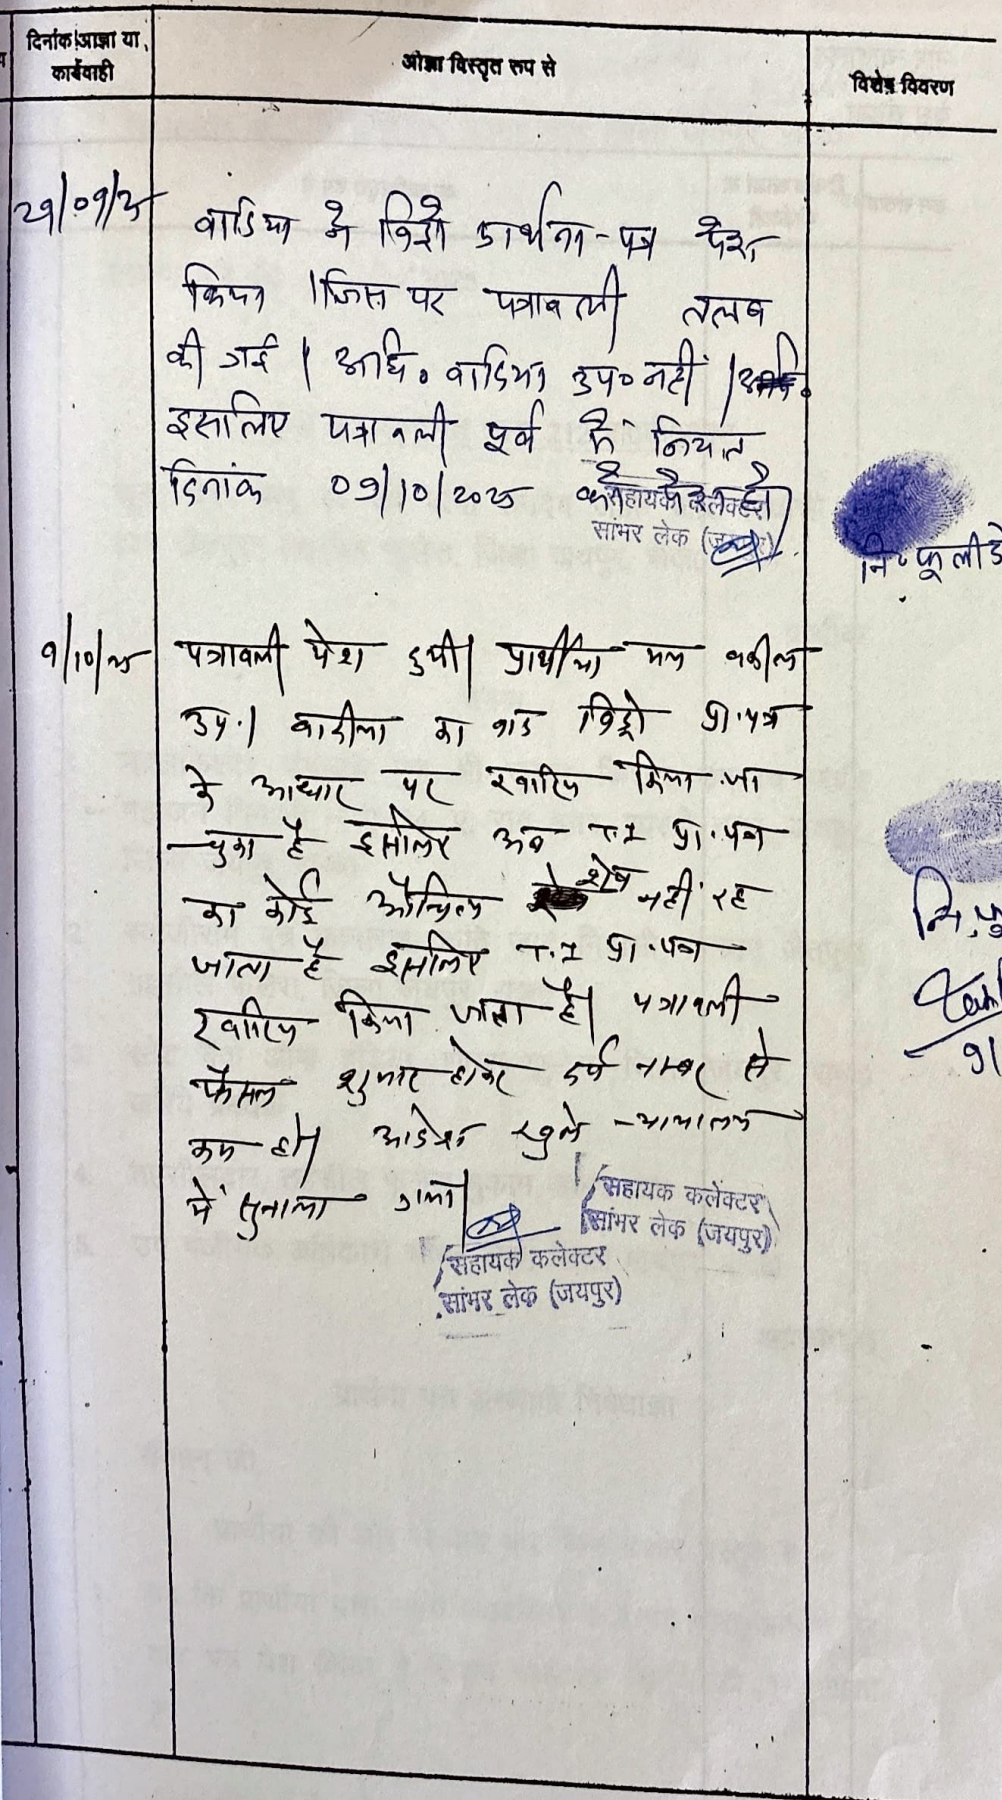 दिनांक आज्ञा या
कार्यवाही
ओझा विस्तृत रुप से
विशेष विवरण
29/09/25
वादिया ने विड्रो प्रार्थना-पत्र पेश
किया । जिस पर पत्रावली तलब
की गई । अधि० वादिया उप० नहीं ।
इसलिए पत्रावली पूर्व में नियत
दिनांक 09/10/2025 को पेश हो
सहायक कलेक्टर
सांभर लेक (जयपुर)
नि० फूली दे
9/10/25
पत्रावली पेश हुयी। प्रार्थीया मय वकील
उप.। वादीया का वाद विड्रो प्रा.पत्र
के आधार पर खारिज किया जा
चुका है इसलिए अब T.I प्रा.पत्र
का कोई औचित्य शेष नहीं रह
जाता है इसलिए T.I प्रा.पत्र
खारिज किया जाता है। पत्रावली
फैसल शुमार होकर दर्ज नम्बर से
कम हो। आदेश खुले न्यायालय
में सुनाया गया।
सहायक कलेक्टर
सांभर लेक (जयपुर)
सहायक कलेक्टर
सांभर लेक (जयपुर)
नि. फू
9/